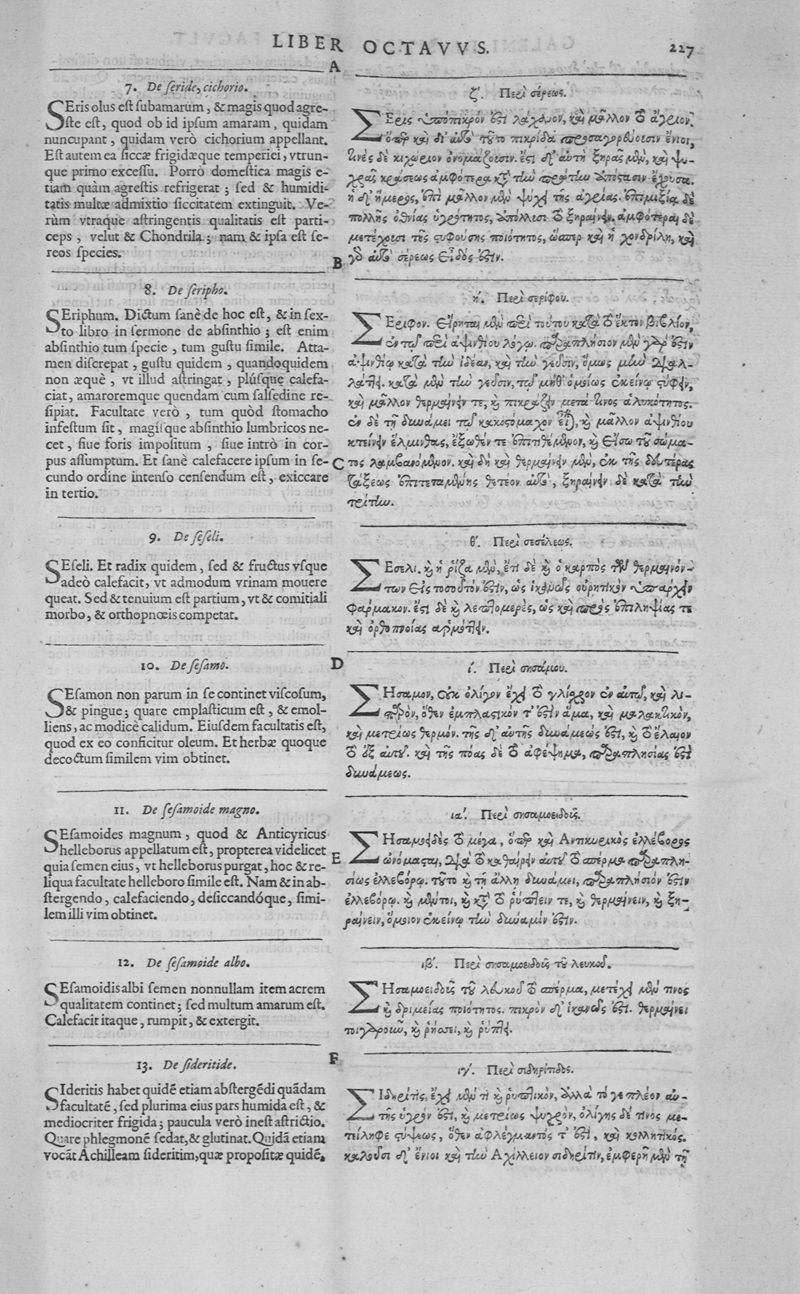 LIBER OCTAVVS. 227
A
7. De seride, cichorio.
SEris olus est subamarum, & magis quod agre-
ste est, quod ob id ipsum amaram, quidam
nuncupant, quidam verò cichorium appellant.
Est autem ea siccæ frigidæque temperiei, vtrun-
que primo excessu. Porrò domestica magis e-
tiam quàm agrestis refrigerat; sed & humidi-
tatis multæ admixtio siccitatem extinguit. Ve-
rùm vtraque astringentis qualitatis est parti-
ceps, velut & Chondrila; nam & ipsa est se-
reos species.
B
8. De seripho.
SEriphum. Dictum sanè de hoc est, & in sex-
to libro in sermone de absinthio; est enim
absinthio tum specie, tum gustu simile. Atta-
men discrepat, gustu quidem, quandoquidem
non æquè, vt illud astringat, plúsque calefa-
ciat, amaroremque quendam cum salsedine re-
sipiat. Facultate verò, tum quòd stomacho
infestum sit, magisque absinthio lumbricos ne-
cet, siue foris impositum, siue intrò in cor-
pus assumptum. Et sanè calefacere ipsum in se-
cundo ordine intenso censendum est, exiccare
in tertio.
C
9. De seseli.
SEseli. Et radix quidem, sed & fructus vsque
adeò calefacit, vt admodum vrinam mouere
queat. Sed & tenuium est partium, vt & comitiali
morbo, & orthopnœis competat.
D
10. De sesamo.
SEsamon non parum in se continet viscosum,
& pingue; quare emplasticum est, & emol-
liens, ac modicè calidum. Eiusdem facultatis est,
quod ex eo conficitur oleum. Et herbæ quoque
decoctum similem vim obtinet.
11. De sesamoide magno.
SEsamoides magnum, quod & Anticyricus
helleborus appellatum est, propterea videlicet
quia semen eius, vt helleborus purgat, hoc & re-
liqua facultate helleboro simile est. Nam & in ab-
stergendo, calefaciendo, desiccandóque, simi-
lem illi vim obtinet.
E
12. De sesamoide albo.
SEsamoidis albi semen nonnullam item acrem
qualitatem continet; sed multum amarum est.
Calefacit itaque, rumpit, & extergit.
F
13. De sideritide.
SIderitis habet quidẽ etiam abstergẽdi quãdam
facultatẽ, sed plurima eius pars humida est, &
mediocriter frigida; paucula verò inest astrictio.
Quare phlegmonẽ sedat, & glutinat. Quidã etiam
vocãt Achilleam sideritim, quæ propositæ quidẽ,
ζ'. Περὶ σέρεως.
ΣΕρις ὑπόπικρόν ἐστι λάχανον, καὶ μᾶλλον ἡ ἀγρία,
πικρίδα προσαγορεύουσιν ἔνιοι,
τινὲς δὲ κιχώριον ὀνομάζουσιν.
πολλῆς οὐσίας ὑγρότητος,
μετέχουσι τῆς στυφούσης ποιότητος, ὥσπερ καὶ ἡ χονδρίλη, καὶ
σέρεως εἶδός ἐστιν.
η'. Περὶ σερίφου.
ΣΕριφον. Εἴρηται μὲν περὶ τούτου κατὰ τὸ ἕκτον βιβλίον,
ἀψινθίῳ κατὰ τὴν ἰδέαν, καὶ τὴν γεῦσιν,
καὶ μᾶλλον θερμαίνειν τε, καὶ πικράζειν μετά τινος ἁλυκότητος.
κτείνειν ἕλμινθας, ἔξωθέν τε ἐπιτιθέμενον, καὶ εἴσω τοῦ σώμα-
τος λαμβανόμενον. καὶ δὴ καὶ θερμαίνειν μὲν, ἐκ τῆς δευτέρας
τάξεως ἐπιτεταμένης θετέον αὐτὸ, ξηραίνειν δὲ κατὰ τὴν
τρίτην.
θ'. Περὶ σεσέλεως.
ΣΕσελι. καὶ ἡ ῥίζα μὲν, ἔτι δὲ καὶ ὁ καρπὸς τῶν θερμαινόν-
των εἰς τοσοῦτόν ἐστιν, ὡς ἱκανῶς οὐρητικὸν ὑπάρχειν
φάρμακον. ἔστι δὲ καὶ λεπτομερὲς, ὡς καὶ πρὸς ἐπιληψίας τε
καὶ ὀρθοπνοίας ἁρμόττειν.
ι'. Περὶ σησάμου.
ΣΗσαμον, οὐκ ὀλίγον ἔχει τὸ γλίσχρον ἐν αὑτῷ, καὶ λι-
παρὸν, ὅθεν ἐμπλαστικόν τ' ἐστὶν ἅμα, καὶ μαλακτικὸν,
καὶ μετρίως θερμόν. τῆς δ' αὐτῆς δυνάμεώς ἐστι, καὶ τὸ ἔλαιον
τὸ ἐξ αὐτοῦ. καὶ τῆς πόας δὲ τὸ ἀφέψημα, παραπλησίας ἐστὶ
δυνάμεως.
ια'. Περὶ σησαμοειδοῦς.
ΣΗσαμοειδὲς τὸ μέγα, ὅπερ καὶ Ἀντικυρικὸς ἑλλέβορος
ὠνόμασται, διὰ τὸ καθαίρειν αὐτοῦ τὸ σπέρμα παραπλη-
σίως ἑλλεβόρῳ. τοῦτο καὶ τῇ ἄλλῃ δυνάμει, παραπλήσιόν ἐστιν
ἑλλεβόρῳ. καὶ μέντοι, καὶ κατὰ τὸ ῥύπτειν τε, καὶ θερμαίνειν, καὶ ξη-
ραίνειν, ὅμοιον ἐκείνῳ τὴν δύναμίν ἐστιν.
ιβ'. Περὶ σησαμοειδοῦς τοῦ λευκοῦ.
ΣΗσαμοειδοῦς τοῦ λευκοῦ τὸ σπέρμα, μετέχει μέν τινος
καὶ δριμείας ποιότητος. πικρὸν δ' ἱκανῶς ἐστι. θερμαίνει
τοιγαροῦν, καὶ ῥήσσει, καὶ ῥύπτει.
ιγ'. Περὶ σιδηρίτιδος.
ΣΙδηρῖτις, ἔχει μέν τι καὶ ῥυπτικὸν, ἀλλὰ τό γε πλέον αὐ-
τῆς ὑγρόν ἐστι, καὶ μετρίως ψυχρὸν. ὀλίγης δέ τινος με-
τείληφε στύψεως, ὅθεν ἀφλέγμαντός τ' ἐστὶ, καὶ κολλητικός.
καλοῦσι δ' ἔνιοι καὶ τὴν Ἀχίλλειον σιδηρῖτιν, ἐμφερῆ μὲν τῇ